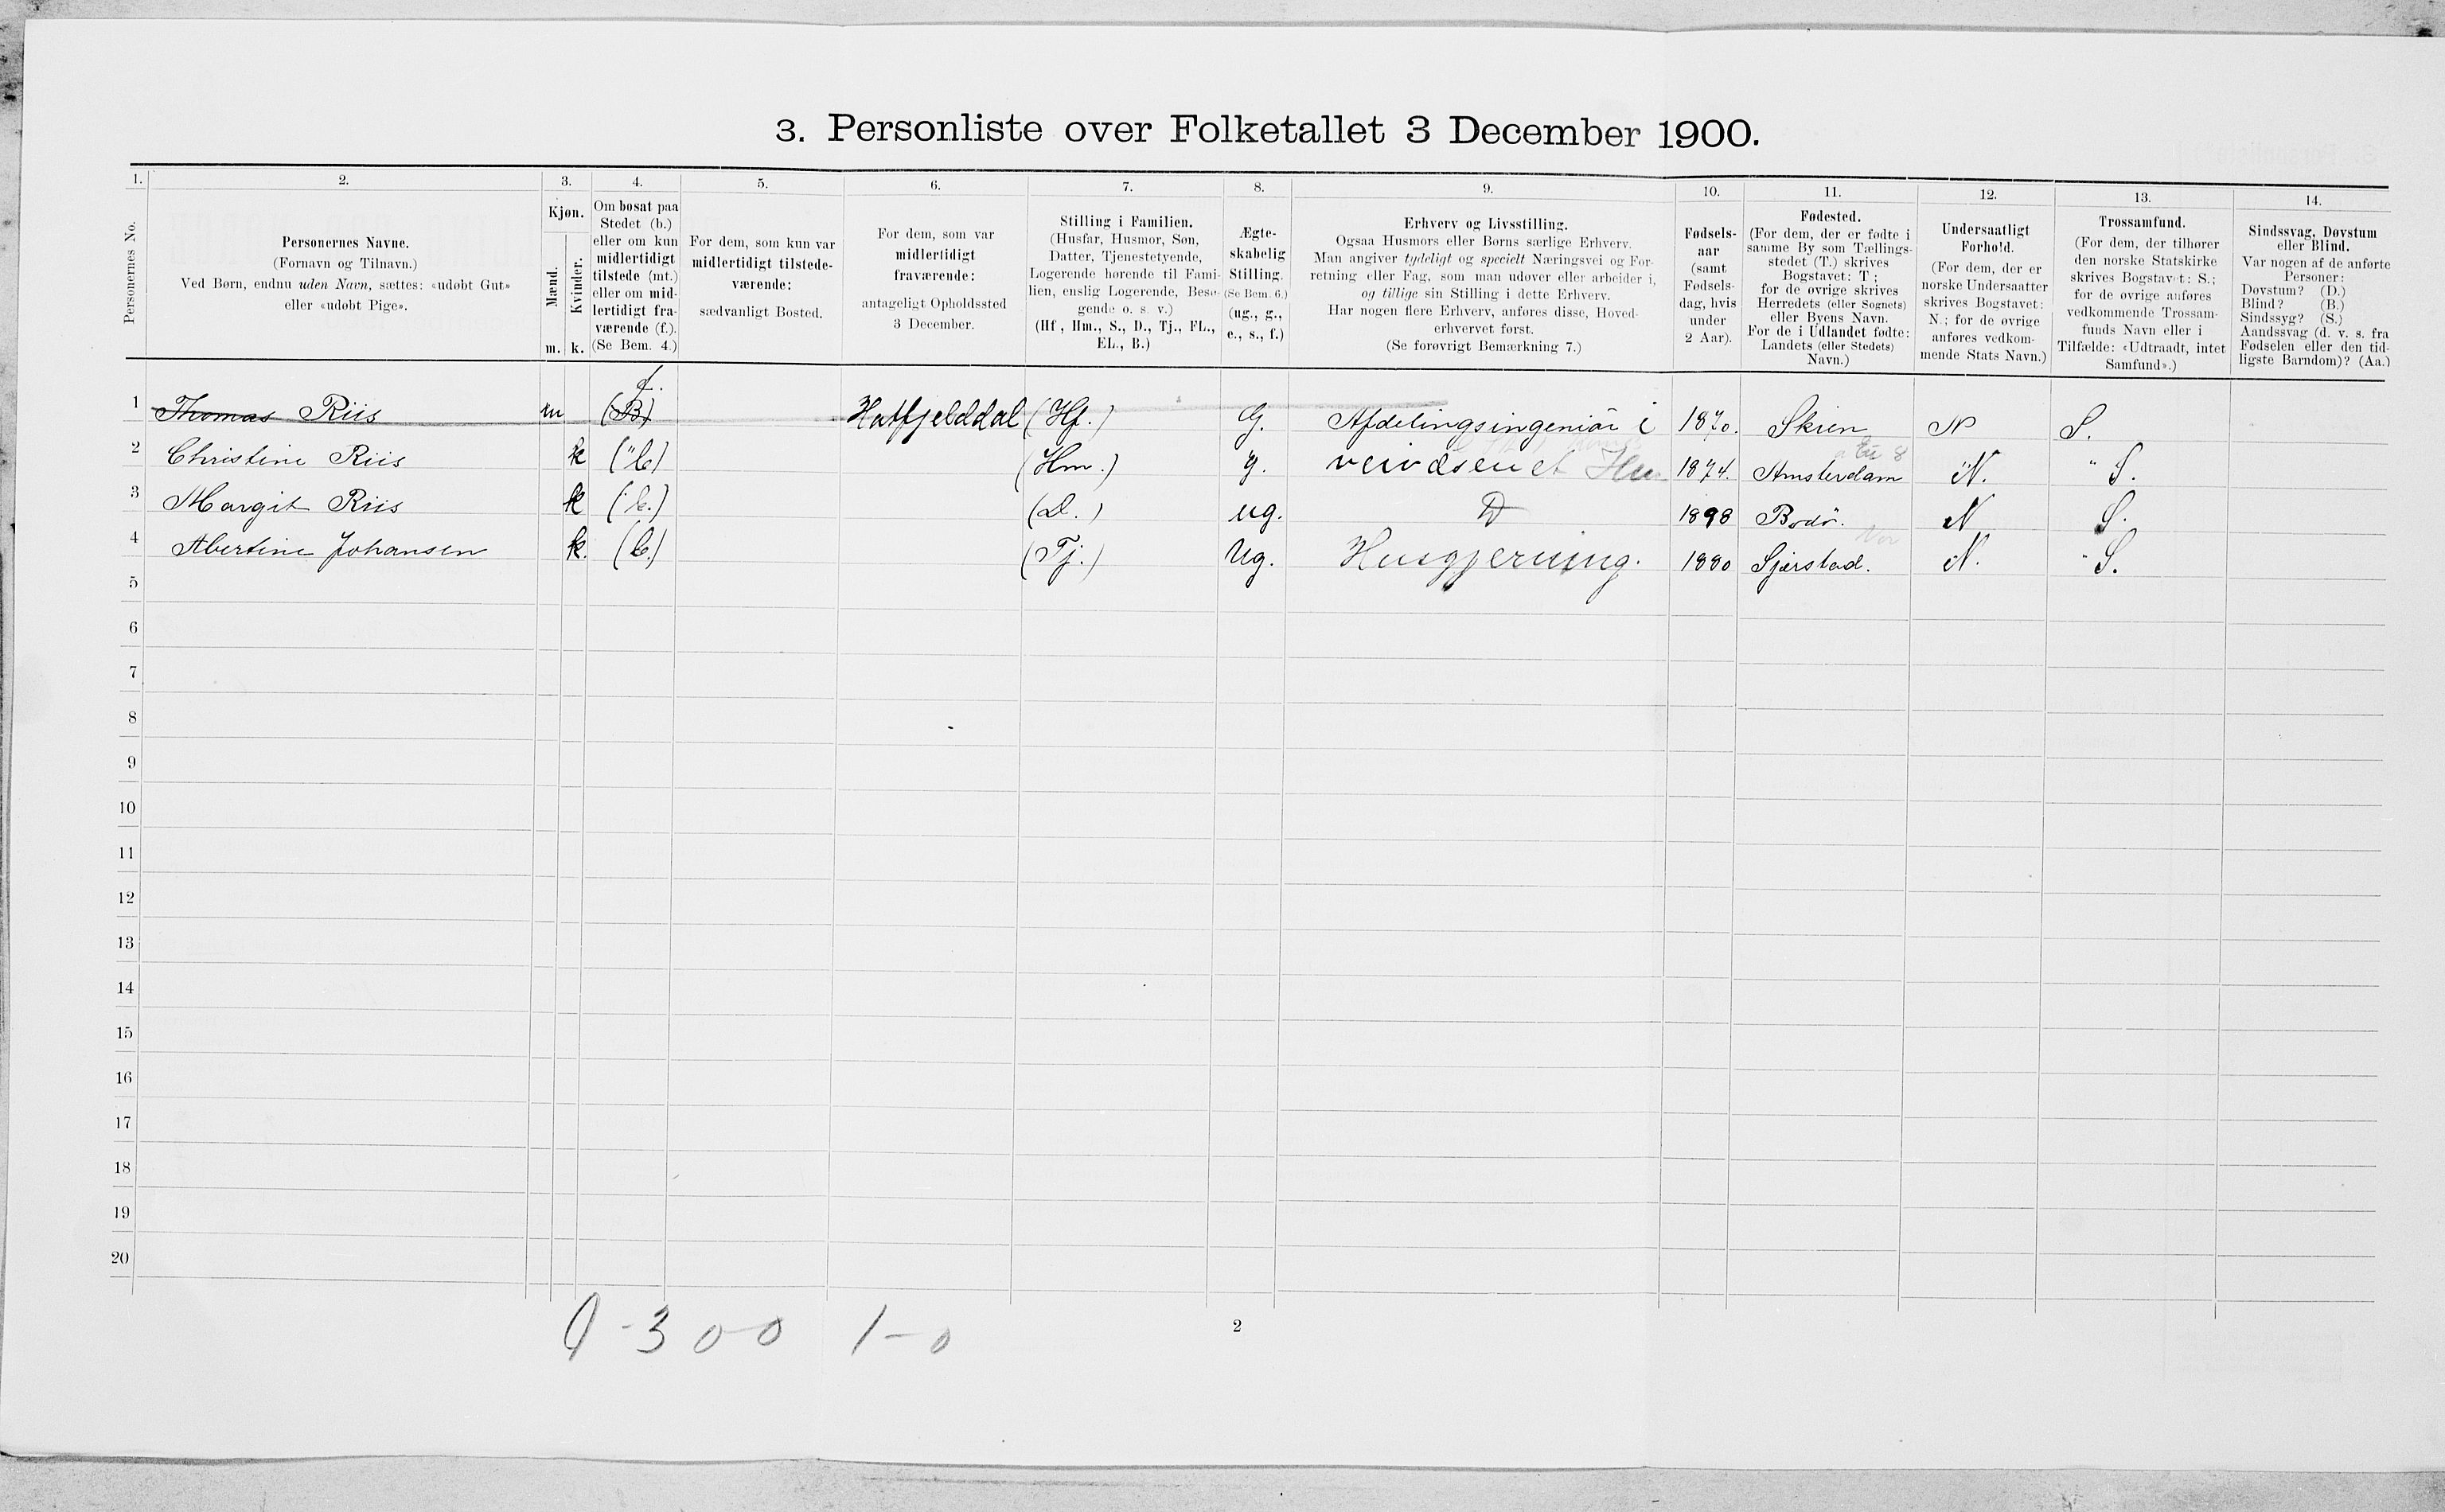 3. Personliste over Folketallet 3 December 1900.
1. 2. 3. 4. 5. 6. 7. 8. 9. 10. 11. 12. 13. 14.
Personernes No.
Personernes Navne.
(Fornavn og Tilnavn.)
Ved Børn, endnu uden Navn, sættes: «udøbt Gut»
eller «udøbt Pige».
Kjøn.
Mænd.
Kvinder.
m. k.
Om bosat paa
Stedet (b.)
eller om kun
midlertidigt
tilstede (mt.)
eller om mid-
lertidigt fra-
værende (f.).
(Se Bem. 4.)
For dem, som kun var
midlertidigt tilstede-
værende:
sædvanligt Bosted.
For dem, som var
midlertidigt
fraværende:
antageligt Opholdssted
3 December.
Stilling i Familien.
(Husfar, Husmor, Søn,
Datter, Tjenestetyende,
Logerende hørende til Fami-
lien, enslig Logerende, Besø-
gende o. s. v.)
(Hf, Hm., S., D., Tj., FL.,
EL., B.)
Ægte-
skabelig
Stilling.
(Se Bem. 6.)
(ug., g.,
e., s., f.)
Erhverv og Livsstilling.
Ogsaa Husmors eller Børns særlige Erhverv.
Man angiver tydeligt og specielt Næringsvei og For-
retning eller Fag, som man udøver eller arbeider i,
og tillige sin Stilling i dette Erhverv.
Har nogen flere Erhverv, anføres disse, Hoved-
erhvervet først.
(Se forøvrigt Bemærkning 7.)
Fødsels-
aar
(samt
Fødsels-
dag, hvis
under
2 Aar).
Fødested.
(For dem, der er fødte i
samme By som Tællings-
stedet (T.) skrives
Bogstavet: T;
for de øvrige skrives
Herredets (eller Sognets)
eller Byens Navn.
For de i Udlandet fødte:
Landets (eller Stedets)
Navn.)
Undersaatligt
Forhold.
(For dem, der er
norske Undersaatter
skrives Bogstavet:
N.; for de øvrige
anføres vedkom-
mende Stats Navn.)
Trossamfund.
(For dem, der tilhører
den norske Statskirke
skrives Bogstavet: S.;
for de øvrige anføres
vedkommende Trossam-
funds Navn eller i
Tilfælde: «Udtraadt, intet
Samfund».)
Sindssvag, Døvstum
eller Blind.
Var nogen af de anførte
Personer:
Døvstum? (D.)
Blind? (B.)
Sindssyg? (S.)
Aandssvag (d. v. s. fra
Fødselen eller den tid-
ligste Barndom)? (Aa.)
f.
1 Thomas Riis m (B) Hatfjelddal (Hf.) G. Afdelingsingeniør i 1870. Skien N S.
2 Christine Riis k (" b) (Hm.) g. veivæsenet 1874. Amsterdam "N. " S.
3 Margit Riis k (" b.) (D.) ug. D 1898 Bodø. N S.
4 Abertine Johansen k. (b.) (Tj.) Ug. Husgjerning. 1880 Sjerstad. N. " S.
5
6
7
8
9
10
11
12
13
14
15
16
17
18
19
20
0-3 0-0 1-0
2